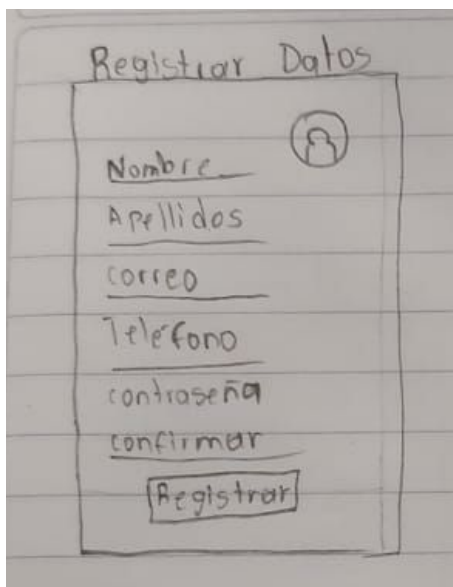 Registrar Datos
Nombre
Apellidos
correo
Teléfono
contraseña
confirmar
Registrar